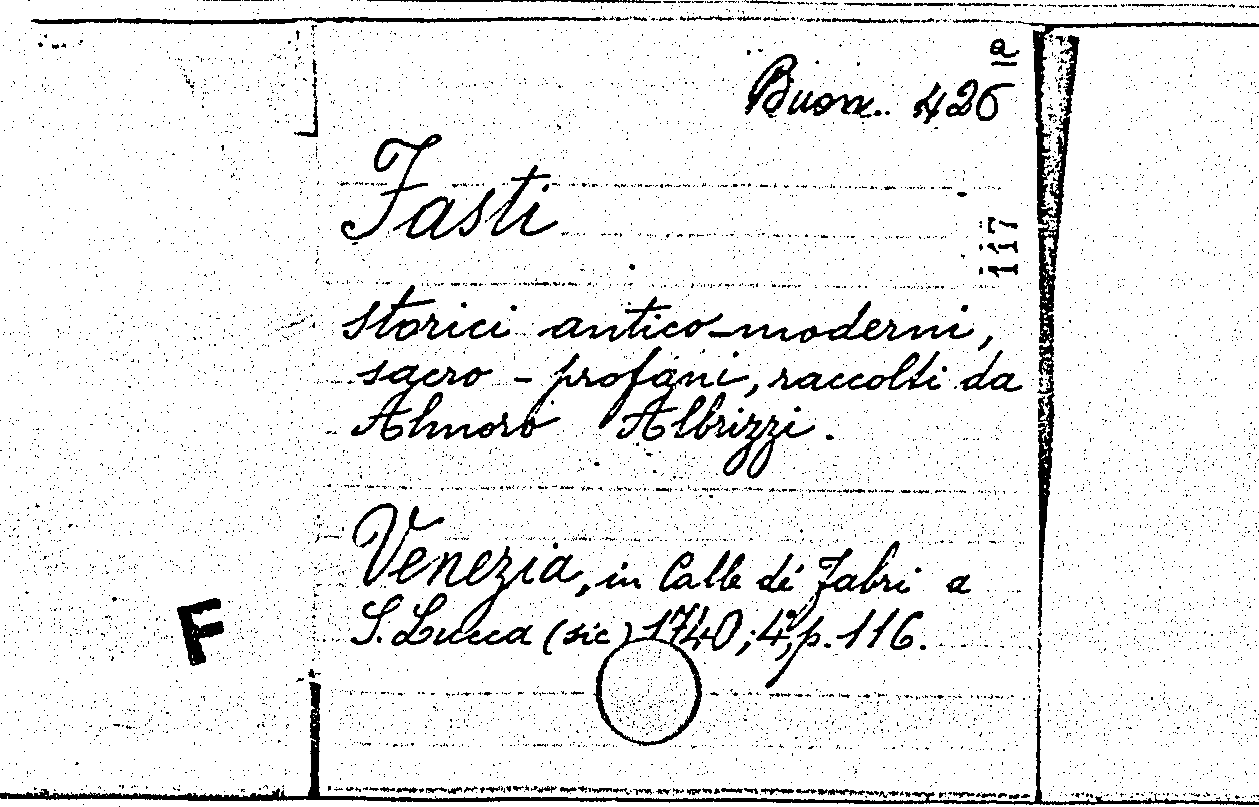 a
Buon. 426
Fasti
117
storici antico-moderni,
sacro - profani, raccolti da
Almorò Albrizzi.
Venezia, in Calle di Fabri a
S. Lucca (sic) 1740; 4°, p. 116.
F